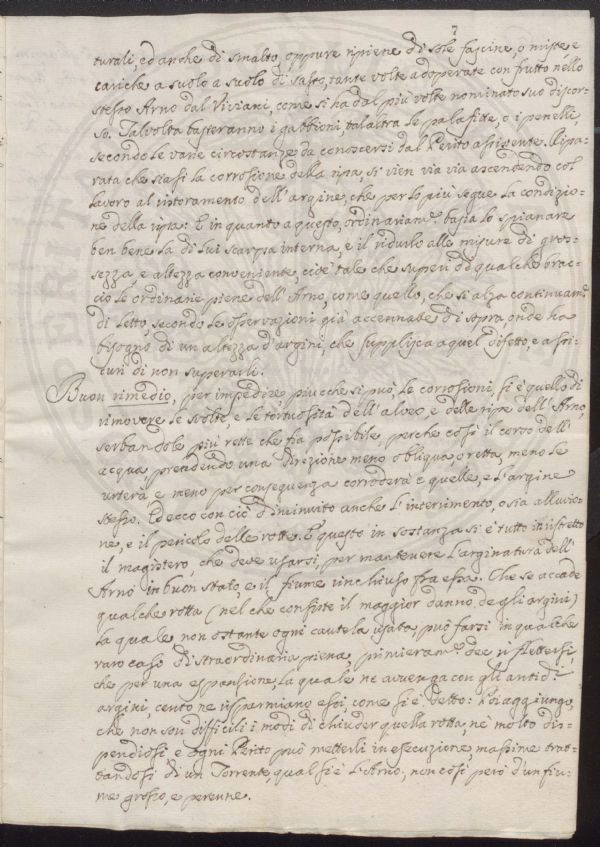 7
turali, ed anche di smalto, oppure ripiene di sole fascine, o miste e
cariche a suolo a suolo di sasso, tante volte adoperate con frutto nello
stesso Arno dal Viviani, come si ha dal più volte nominato suo discor-
so. Talvolta basteranno i gabbioni, talaltra le palafitte, o i penelli,
secondo le varie circostanze da conoscersi dal Perito assistente. Ripa-
rata che siasi la corrosione della ripa, si vien via via ascendendo col
lavoro al ristoramento dell'argine, che per lo più segue la condizio-
ne della ripa: E in quanto a questo, ordinariam.e basta lo spianare
ben bene la di lui scarpa interna, e il ridurlo alle misure di gros-
sezza, e altezza conveniente, cioè tale che superi di qualche brac-
cio le ordinarie piene dell'Arno, come quello, che si alza continuam.e
di letto, secondo le osservazioni già accennate di sopra, onde ha
bisogno di un altezza d'argini, che supplisca a quel difetto, e assi-
curi di non superarli.
Buon rimedio, per impedire più che si può, le corrosioni, si è quello di
rimovere le svolte, e le tortuosità dell'alveo, e delle ripe dell'Arno,
serbandole più rette che sia possibile, perche così il corso dell'
acqua prendendo una direzione meno obliqua, o retta, meno le
urterà e meno per conseguenza corroderà e quelle, e l'argine
stesso. Ed ecco con ciò diminuito anche l'interrimento, o sia alluvio-
ne, e il pericolo delle rotte. E questo in sostanza si è tutto in ristretto
il magistero, che deve usarsi, per mantenere l'arginatura dell'
Arno in buon stato, e il fiume rinchiuso fra essa. Che se accade
qualche rotta (nel che consiste il maggior danno degli argini)
la quale non ostante ogni cautela usata, può farsi in qualche
raro caso di straordinaria piena, primieram.e dee riflettersi,
che per una espansione, la quale ne avvenga con gli antid.i
argini, cento ne risparmiano essi, come si è detto: Poi aggiungo,
che non son difficili i modi di chiuder quella rotta, nè molto dis-
pendiosi e ogni Perito può metterli in esecuzione, massime trat-
tandosi di un Torrente, qual si è l'Arno, non così però d'un fiu-
me grosso, e perenne.